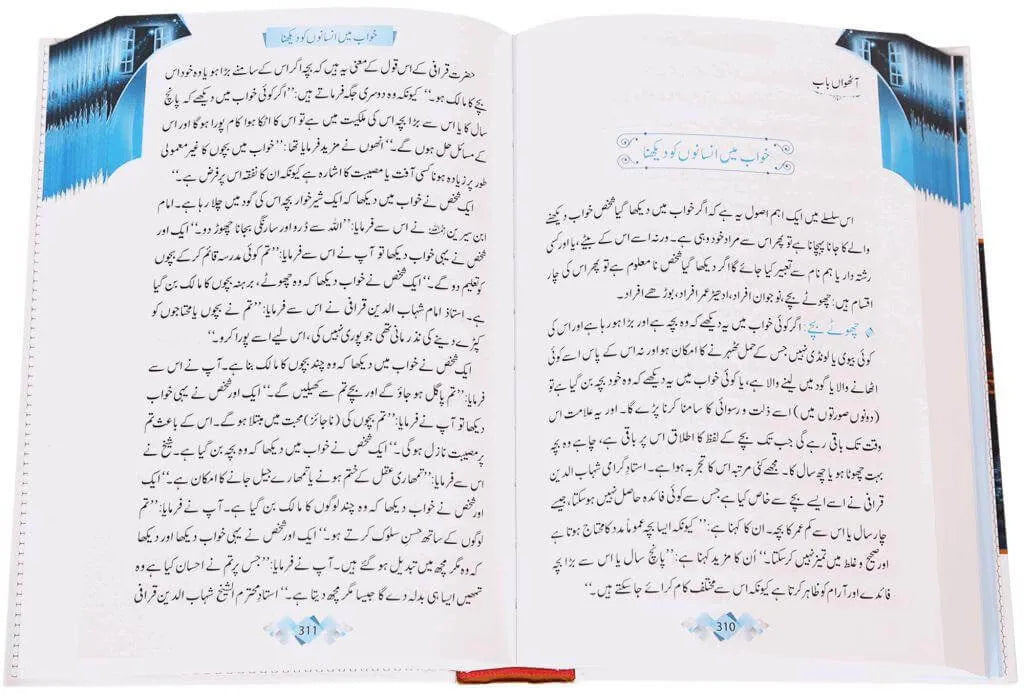 آٹھواں باب
خواب میں انسانوں کو دیکھنا
اس سلسلے میں ایک اہم اصول یہ ہے کہ اگر خواب میں دیکھا گیا شخص خواب دیکھنے
والے کا جانا پہچانا ہے تو پھر اس سے مراد خود وہی ہے۔ ورنہ اسے اس کے بیٹے، یا اور کسی
رشتہ دار یا ہم نام سے تعبیر کیا جائے گا اگر دیکھا گیا شخص نا معلوم ہے تو پھر اس کی چار
اقسام ہیں: چھوٹے بچے، نوجوان افراد، ادھیڑ عمر افراد، بوڑھے افراد۔
چھوٹے بچے: اگر کوئی خواب میں یہ دیکھے کہ وہ بچہ ہے اور بڑا ہو رہا ہے اور اس کی
کوئی بیوی یا لونڈی نہیں جس کے حمل ٹھہرنے کا امکان ہو اور نہ اس کے پاس اسے کوئی
اٹھانے والا یا گود میں لینے والا ہے، یا کوئی خواب میں یہ دیکھے کہ وہ خود بچہ بن گیا ہے تو
(دونوں صورتوں میں) اسے ذلت و رسوائی کا سامنا کرنا پڑے گا۔ اور یہ علامت اس
وقت تک باقی رہے گی جب تک بچے کے لفظ کا اطلاق اس پر باقی ہے، چاہے وہ بچہ
بہت چھوٹا ہو یا چھ سال کا۔ مجھے کئی مرتبہ اس کا تجربہ ہوا ہے۔ استاذ گرامی شہاب الدین
قرافی نے اسے ایسے بچے سے خاص کیا ہے جس سے کوئی فائدہ حاصل نہیں ہو سکتا، جیسے
چار سال یا اس سے کم عمر کا بچہ۔ ان کا کہنا ہے: ’’کیونکہ ایسا بچہ عموماً مدد کا محتاج ہوتا ہے
اور صحیح و غلط میں تمیز نہیں کر سکتا۔‘‘ اُن کا مزید کہنا ہے: ’’پانچ سال یا اس سے بڑا بچہ
فائدے اور آرام کو ظاہر کرتا ہے کیونکہ اس سے مختلف کام کرائے جا سکتے ہیں۔‘‘
310
خواب میں انسانوں کو دیکھنا
حضرت قرافی کے اس قول کے معنی یہ ہیں کہ بچہ اگر اس کے سامنے بڑا ہو یا وہ خود اس
بچے کا مالک ہو۔‘‘ کیونکہ وہ دوسری جگہ فرماتے ہیں: ’’اگر کوئی خواب میں دیکھے کہ پانچ
سال کا یا اس سے بڑا بچہ اس کی ملکیت میں ہے تو اس کا اٹکا ہوا کام پورا ہوگا اور اس
کے مسائل حل ہوں گے۔‘‘ انھوں نے مزید فرمایا تھا: ’’خواب میں بچوں کا غیر معمولی
طور پر زیادہ ہونا کسی آفت یا مصیبت کا اشارہ ہے کیونکہ ان کا نفقہ اس پر فرض ہے۔‘‘
ایک شخص نے خواب میں دیکھا کہ ایک شیر خوار بچہ اس کی گود میں چلا رہا ہے۔ امام
ابن سیرین نے اس سے فرمایا: ’’اللہ سے ڈرو اور سارنگی بجانا چھوڑ دو۔‘‘ ایک اور
شخص نے یہی خواب دیکھا تو آپ نے اس سے فرمایا: ’’تم کوئی مدرسہ قائم کر کے بچوں
کو تعلیم دو گے۔‘‘ ایک شخص نے خواب دیکھا کہ وہ چھوٹے، برہنہ بچوں کا مالک بن گیا
ہے۔ استاذ امام شہاب الدین قرافی نے اس سے فرمایا: ’’تم نے بچوں یا محتاجوں کو
کپڑے دینے کی نذر مانی تھی جو پوری نہیں کی، اس لیے اسے پورا کرو۔‘‘
ایک شخص نے خواب میں دیکھا کہ وہ چند بچوں کا مالک بنا ہے۔ آپ نے اس سے
فرمایا: ’’تم پاگل ہو جاؤ گے اور بچے تم سے کھیلیں گے۔‘‘ ایک اور شخص نے یہی خواب
دیکھا تو آپ نے فرمایا: ’’تم بچوں کی (ناجائز) محبت میں مبتلا ہو گے۔ اس کے باعث تم
پر مصیبت نازل ہوگی۔‘‘ ایک شخص نے خواب میں دیکھا کہ وہ بچہ بن گیا ہے۔ شیخ نے
اس سے فرمایا: ’’تمھاری عقل کے ختم ہونے یا تمھارے جیل جانے کا امکان ہے۔‘‘ ایک
اور شخص نے خواب دیکھا کہ وہ چند لوگوں کا مالک بن گیا ہے۔ آپ نے فرمایا: ’’تم
لوگوں کے ساتھ حسن سلوک کرتے ہو۔‘‘ ایک اور شخص نے یہی خواب دیکھا اور دیکھا
کہ وہ مگر مچھ میں تبدیل ہو گئے ہیں۔ آپ نے فرمایا: ’’جس پر تم نے احسان کیا ہے وہ
تمھیں ایسا ہی بدلہ دے گا جیسا مگر مچھ دیتا ہے۔‘‘ استاذ محترم الشیخ شہاب الدین قرافی
311